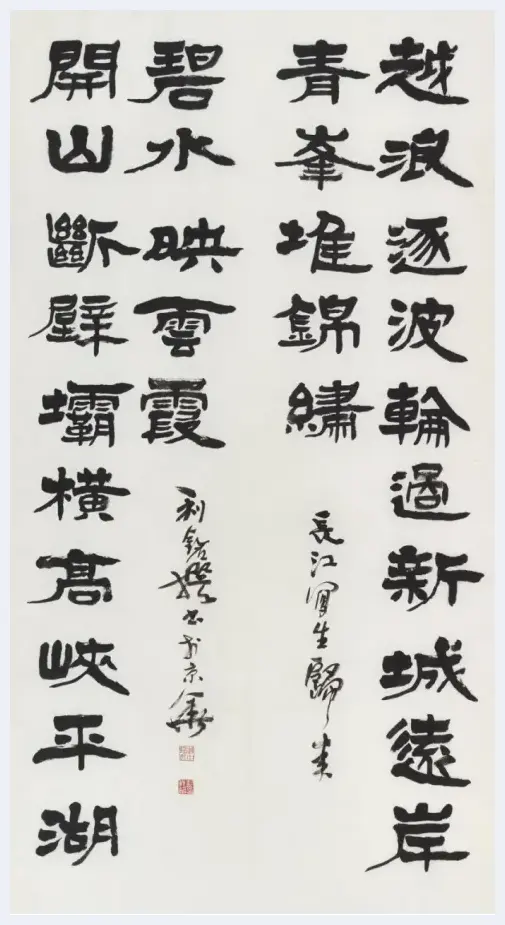 越浪逐波輪過新城遠岸
青峯堆錦繡
長江寫生歸來
開山斷壁壩橫髙峽平湖
碧水映雲霞
利撰書於京華